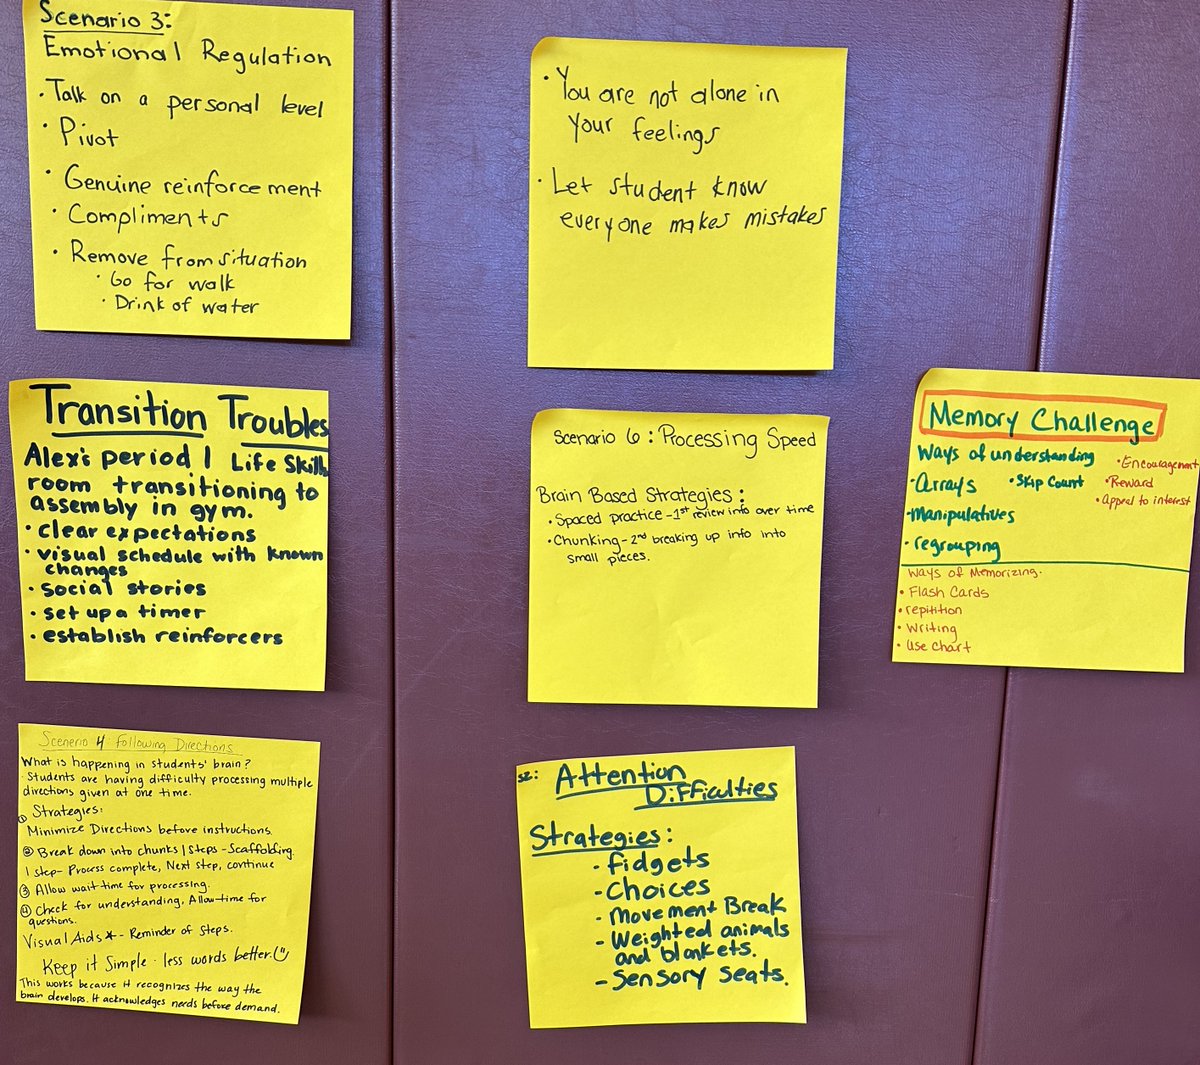 Scenario 3:
Emotional Regulation
• Talk on a personal level
• Pivot
• Genuine reinforcement
• Compliments
• Remove from situation
• Go for walk
• Drink of water
• You are not alone in
your feelings
• Let student know
everyone makes mistakes
Transition Troubles
Alex's period 1 Life Skills
room transitioning to
assembly in gym.
• clear expectations
• visual schedule with known
changes
• social stories
• set up a timer
• establish reinforcers
Scenario 6: Processing Speed
Brain Based Strategies:
• Spaced practice - 1st review info over time
• Chunking - 2nd breaking up info into
small pieces.
Memory Challenge
Ways of understanding
• Arrays
• Skip Count
• Manipulatives
• regrouping
• Encouragement
• Reward
• Appeal to interest
Ways of Memorizing.
• Flash Cards
• repitition
• Writing
• Use Chart
Scenerio 4 Following Directions
What is happening in students' brain?
· Students are having difficulty processing multiple
directions given at one time.
① Strategies:
Minimize Directions before instructions.
② Break down into chunks | Steps - Scaffolding.
1 step - Process complete, Next step, continue
③ Allow wait time for processing.
④ Check for understanding, Allow time for
questions.
Visual Aids * - Reminder of Steps.
Keep it Simple · less words better. ☺
This works because it recognizes the way the
brain develops. It acknowledges needs before demand.
S2: Attention
Difficulties
Strategies:
- fidgets
- Choices
- Movement Break
- Weighted animals
and blankets.
- Sensory seats.